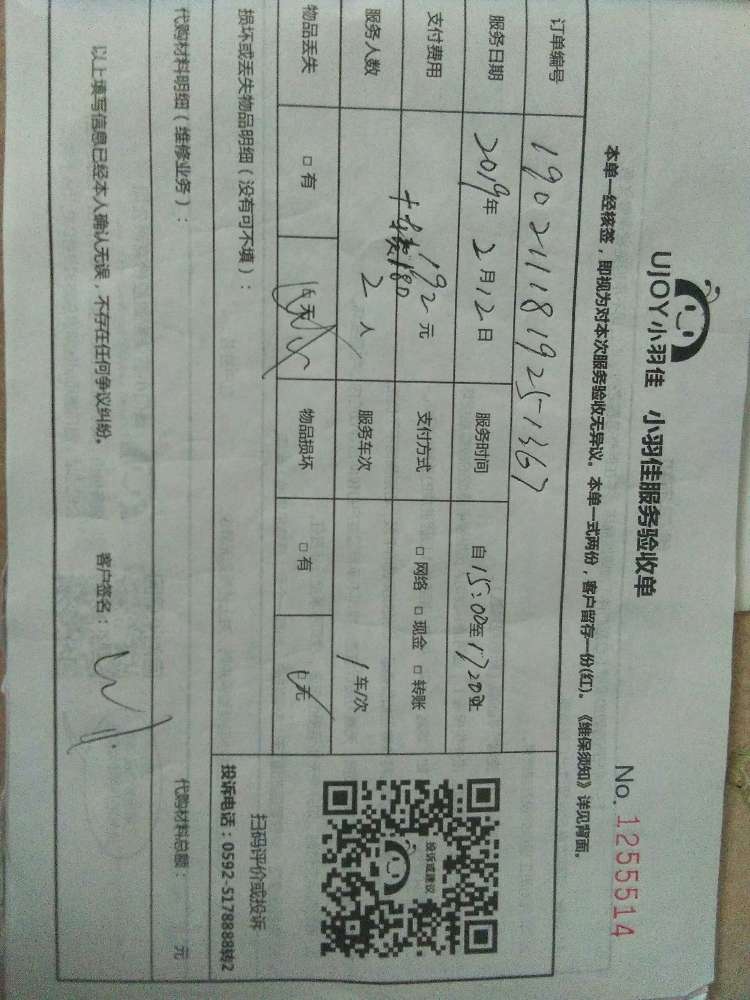 UJOY小羽佳 小羽佳服务验收单
No. 1255514
本单一经核签，即视为对本次服务验收无异议。本单一式两份，客户留存一份(红)。《维保须知》详见背面。
订单编号 1902111819251367
服务日期 2019年2月12日 服务时间 自15:00至17:20止
支付费用 192元 180 支付方式 □网络 □现金 □转账
服务人数 2人 服务车次 1车/次
物品丢失 □有 □无 物品损坏 □有 □无
投诉或建议
扫码评价或投诉
投诉电话：0592-5178888转2
损坏或丢失物品明细（没有可不填）：
代购材料明细（维修业务）： 代购材料总额： 元
以上填写信息已经本人确认无误，不存在任何争议纠纷。 客户签名：